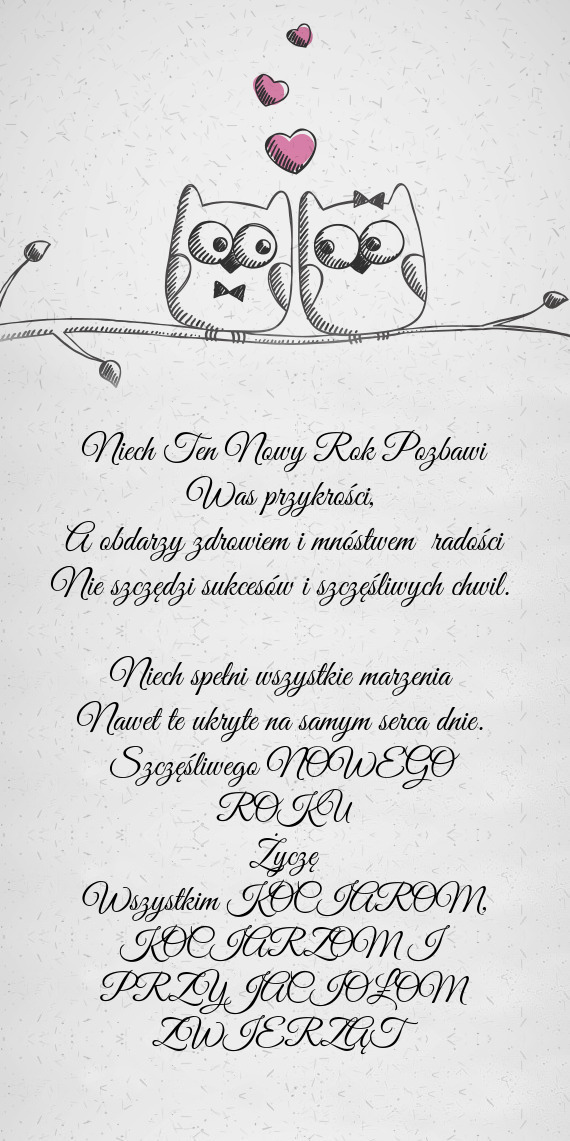 Niech Ten Nowy Rok Pozbawi
Was przykrości,
A obdarzy zdrowiem i mnóstwem radości
Nie szczędzi sukcesów i szczęśliwych chwil.
Niech spełni wszystkie marzenia
Nawet te ukryte na samym serca dnie.
Szczęśliwego NOWEGO
ROKU
Życzę
Wszystkim KOCIAROM,
KOCIARZOM I
PRZYJACIOŁOM
ZWIERZĄT